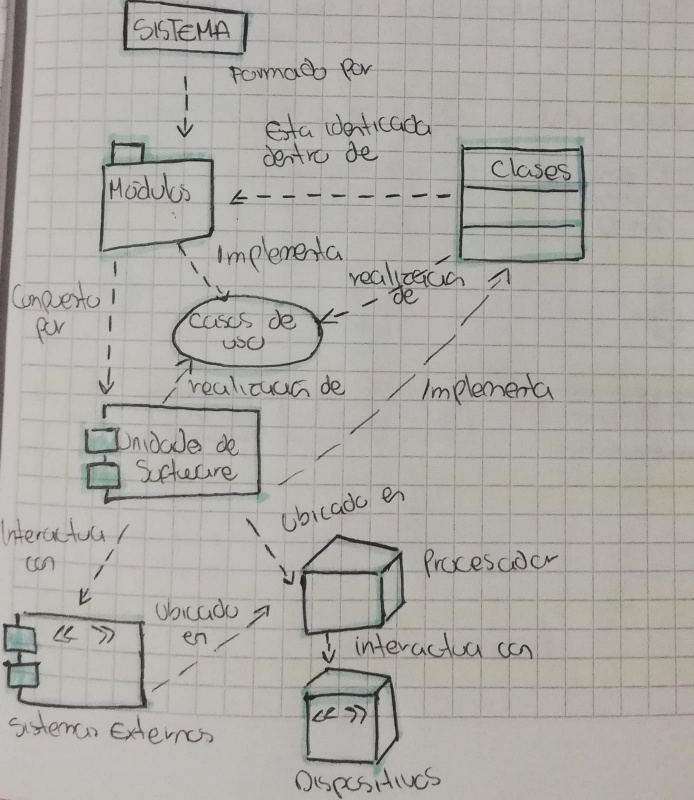 SISTEMA
Formado por
Esta identicada
dentro de
Clases
Modulos
Implementa
realización
de
Compuesto
por
Casos de
uso
realización de
Implementa
Unidades de
Software
Ubicado en
Interactua
con
Procesador
Ubicado
en
<< >>
interactua con
<< >>
Sistemas Externos
Dispositivos